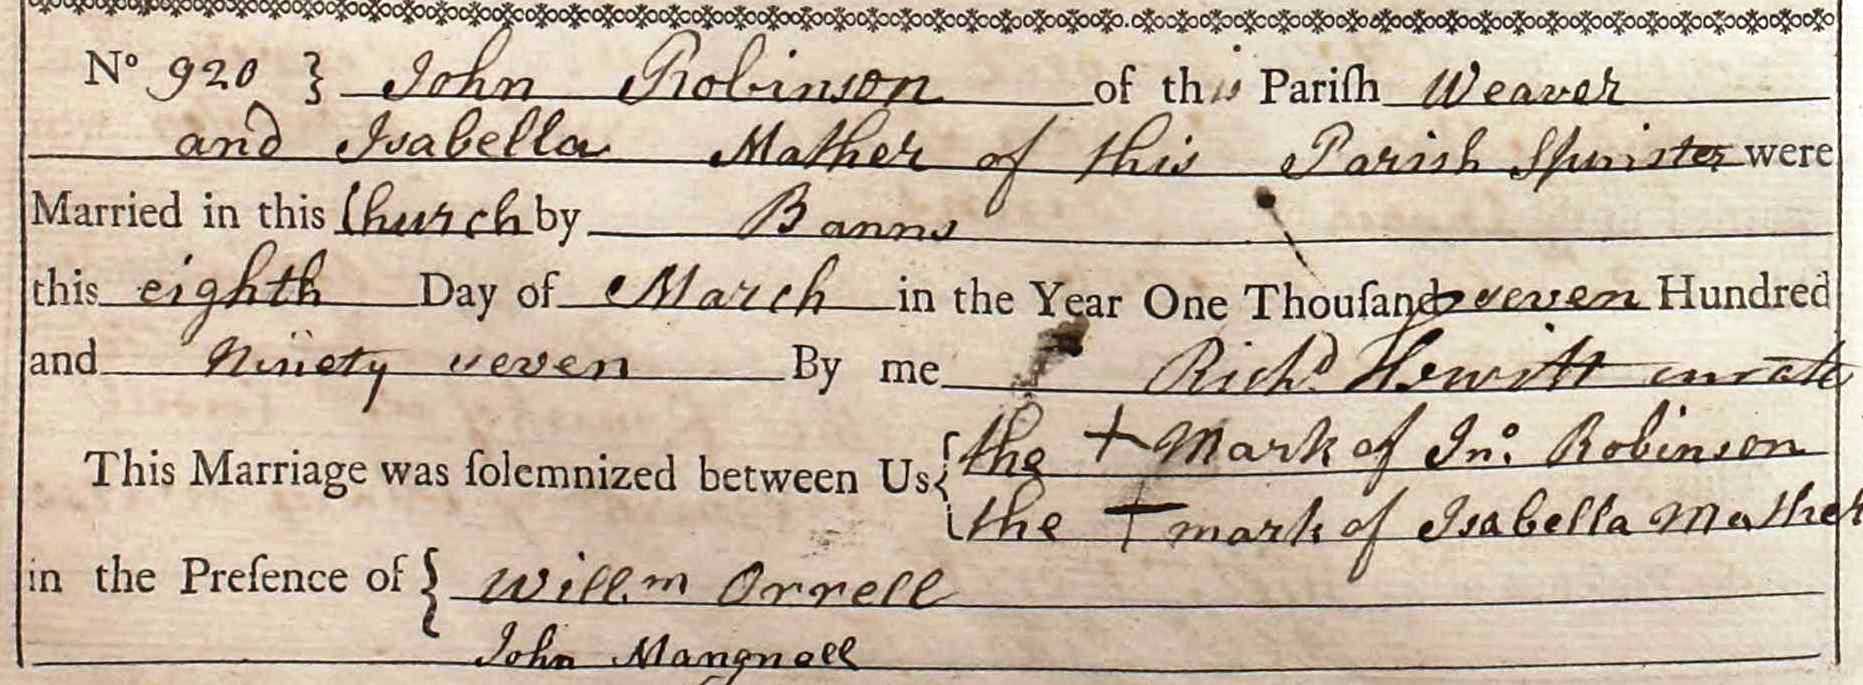 No 920 } John Robinson of this Pariſh Weaver
and Isabella Mather of this Parish Spinster were
Married in this Church by Banns
this eighth Day of March in the Year One Thouſand seven Hundred
and Ninety seven By me Richd Hewitt curate
This Marriage was ſolemnized between Us { the + Mark of Jno: Robinson
the + mark of Isabella Mather
in the Preſence of { Willm Orrell
John Mangnall